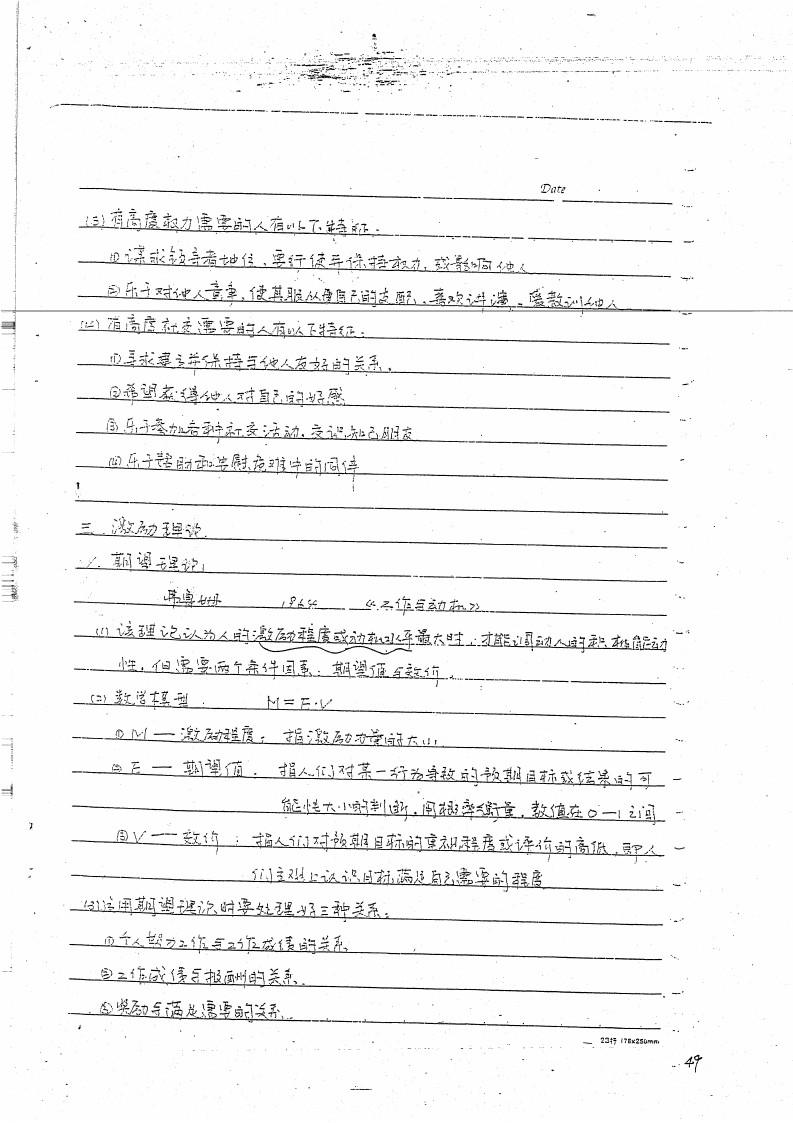 Date
(3) 有高度权力需要的人有以下特征.
① 谋求领导者地位、要行使并保持权力, 或影响他人
② 乐于对他人竞争, 使其服从自己的支配、喜欢讲演、爱教训他人
(4) 有高度社交需要的人有以下特征.
① 寻求建立并保持与他人友好的关系.
② 希望获得他人对自己的好感
③ 乐于参加各种社交活动. 交识知己朋友
④ 乐于帮助和安慰危难中的同伴
三. 激励理论.
1. 期望理论:
弗鲁姆 1964 《工作与动机》
(1) 该理论认为人的激励程度或动机水平最大时, 才能调动人的积极能动
性, 但需要两个条件因素: 期望值与效价.
(2) 数学模型. M=E·V
① M — 激励程度: 指激励力量的大小
② E — 期望值. 指人们对某一行为导致的预期目标或结果的可
能性大小的判断. 用概率衡量. 数值在0—1之间
③ V — 效价: 指人们对预期目标的重视程度或评价的高低. 即人
们主观上认识目标满足自己需要的程度
(3) 应用期望理论时要处理好三种关系:
① 个人努力工作与工作成绩的关系
② 工作成绩与报酬的关系.
③ 奖励与满足需要的关系.
23行 178x250mm
49